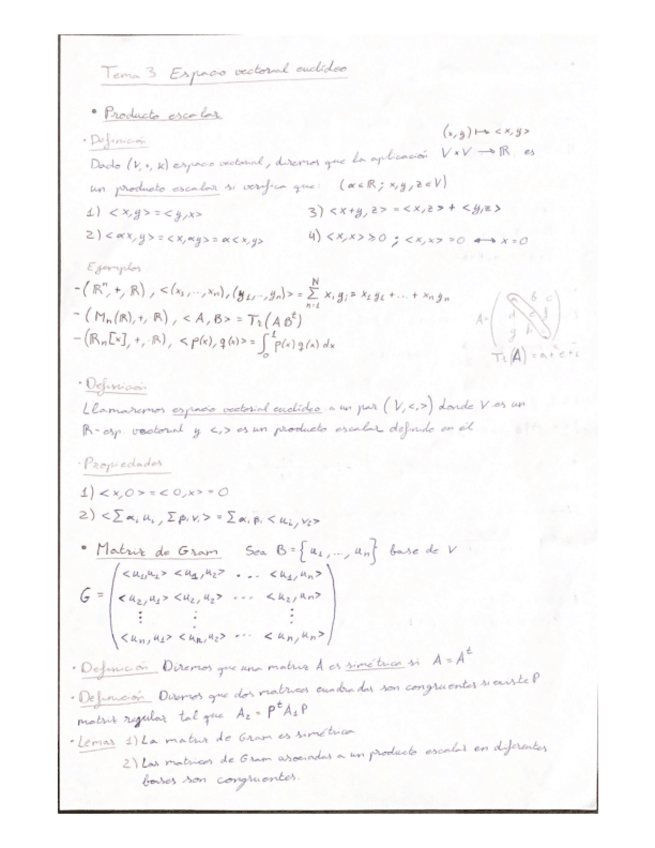 Tema 3 Espacio vectorial euclídeo
• Producto escalar
· Definición
(x,y) ↦ <x,y>
Dado (V,+,K) espacio vectorial, diremos que la aplicación V×V → ℝ es
un producto escalar si verifica que: (α∈ℝ; x,y,z∈V)
1) <x,y> = <y,x>
3) <x+y, z> = <x,z> + <y,z>
2) <αx,y> = <x,αy> = α<x,y>
4) <x,x> ≥ 0 ; <x,x> = 0 ↔ x=0
Ejemplos
- (ℝⁿ,+,ℝ), <(x₁,...,xₙ),(y₁,...,yₙ)> = ∑_{n=1}^{N} xᵢyᵢ = x₁y₁ + ... + xₙyₙ
- (Mₙ(ℝ),+,ℝ), <A,B> = Tr(ABᵗ)
- (ℝₙ[x],+,·ℝ), <p(x),q(x)> = ∫₀¹ p(x)q(x)dx
A = (a b c
d f
g h)
Tr(A) = a+e+i
· Definición
Llamaremos espacio vectorial euclídeo a un par (V,<,>) donde V es un
ℝ-esp. vectorial y <,> es un producto escalar definido en él
· Propiedades
1) <x,0> = <0,x> = 0
2) <∑αᵢuᵢ, ∑βᵢvᵢ> = ∑αᵢβᵢ<uᵢ,vᵢ>
• Matriz de Gram Sea B = {u₁,...,uₙ} base de V
G = (<u₁,u₁> <u₁,u₂> ... <u₁,uₙ>
<u₂,u₁> <u₂,u₂> ... <u₂,uₙ>
⋮ ⋮ ⋮
<uₙ,u₁> <uₙ,u₂> ... <uₙ,uₙ>)
· Definición Diremos que una matriz A es simétrica si A = Aᵗ
· Definición Diremos que dos matrices cuadradas son congruentes si existe P
matriz regular tal que A₂ = PᵗA₁P
· Lemas 1) La matriz de Gram es simétrica
2) Las matrices de Gram asociadas a un producto escalar en diferentes
bases son congruentes.